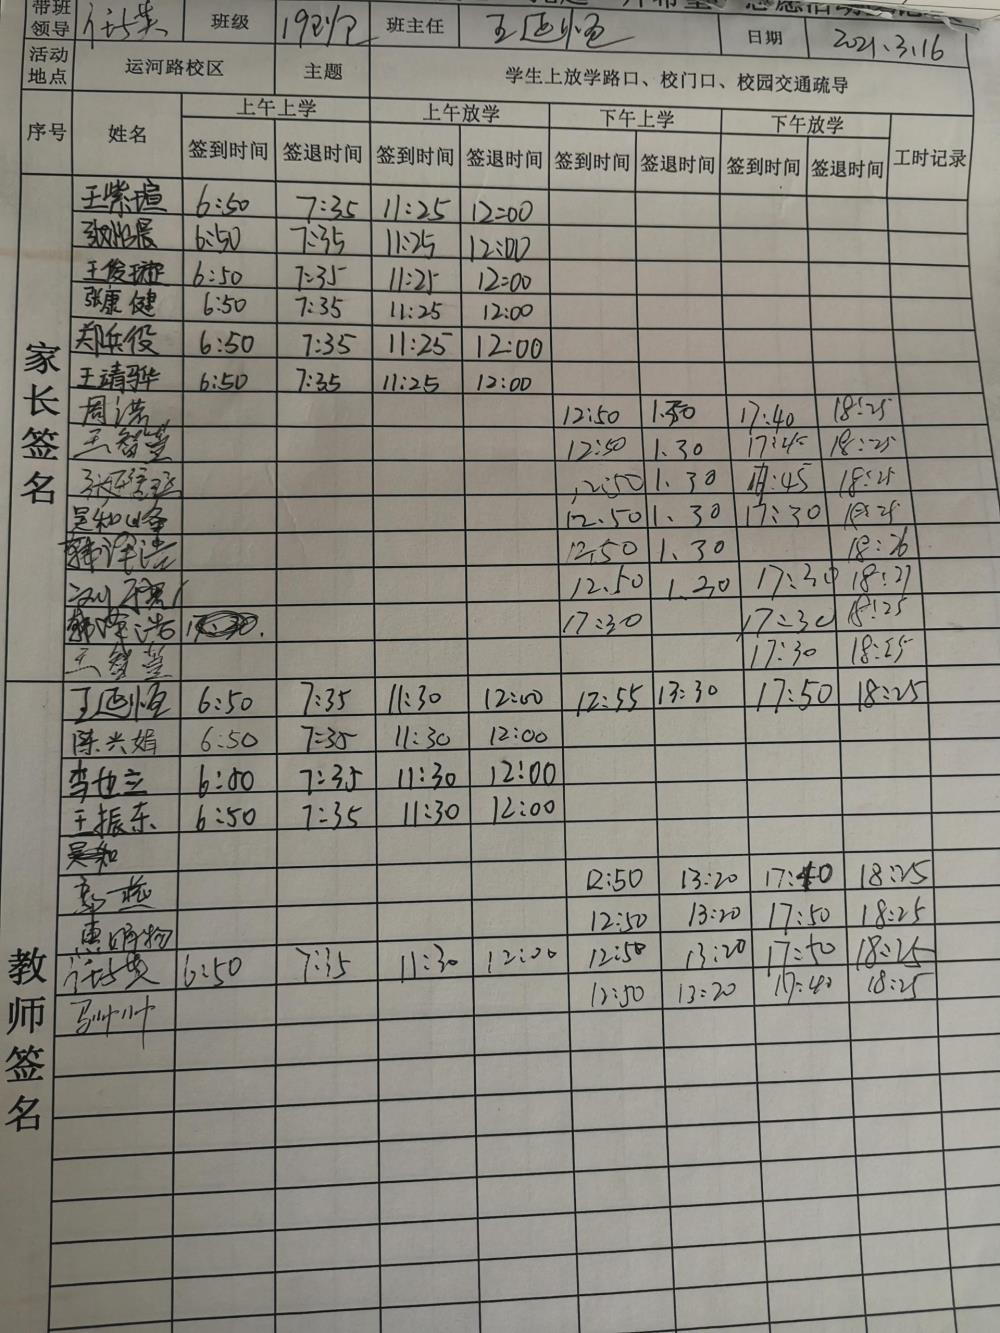 带班领导 班级 班主任 日期 2021.3.16
活动地点 运河路校区 主题 学生上放学路口、校门口、校园交通疏导
序号 姓名 上午上学 上午放学 下午上学 下午放学 工时记录
签到时间 签退时间 签到时间 签退时间 签到时间 签退时间 签到时间 签退时间
家长签名
王紫瑄 6:50 7:35 11:25 12:00
6:50 7:35 11:25 12:00
王俊璇 6:50 7:35 11:25 12:00
张康健 6:50 7:35 11:25 12:00
郑兵役 6:50 7:35 11:25 12:00
王靖骅 6:50 7:35 11:25 12:00
周洪 12:50 1.30 17:40 18:25
王智萱 12:50 1.30 17:45 18:25
12:50 1.30 17:45 18:25
吴和峰 12.50 1.30 17:30 18:25
韩泽浩 12.50 1.30 18:26
12.50 1.30 17:30 18:27
韩泽浩 17:30 17:30 18:25
王智萱 17:30 18:25
教师签名
6:50 7:35 11:30 12:00 12:55 13:30 17:50 18:25
陈兴娟 6:50 7:35 11:30 12:00
李世立 6:50 7:35 11:30 12:00
王振东 6:50 7:35 11:30 12:00
吴和
12:50 13:20 17:40 18:25
12:50 13:20 17:50 18:25
6:50 7:35 11:30 12:00 12:50 13:20 17:50 18:25
马帅帅 12:50 13:20 17:40 18:25